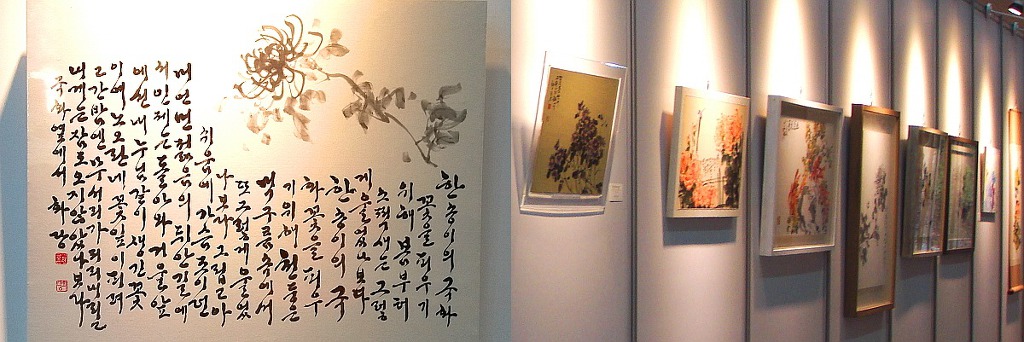 한송이의 국화
꽃을 피우기
위해 봄부터
소쩍새는 그렇
게 울었나 보다
한 송이의 국
화 꽃을 피우
기 위해 천둥은
먹구름 속에서
또 그렇게 울었
나 보다 그립고 아
쉬움에 가슴 조이던
머언 먼 젊음의 뒤안길에
서 인제는 돌아와 거울 앞
에 선 내 누님같이 생긴 꽃
이여 노오란 네 꽃잎이 피려
고 간밤엔 무서리가 저리
내게는 잠도 오지 않았나 보다
국화 옆에서